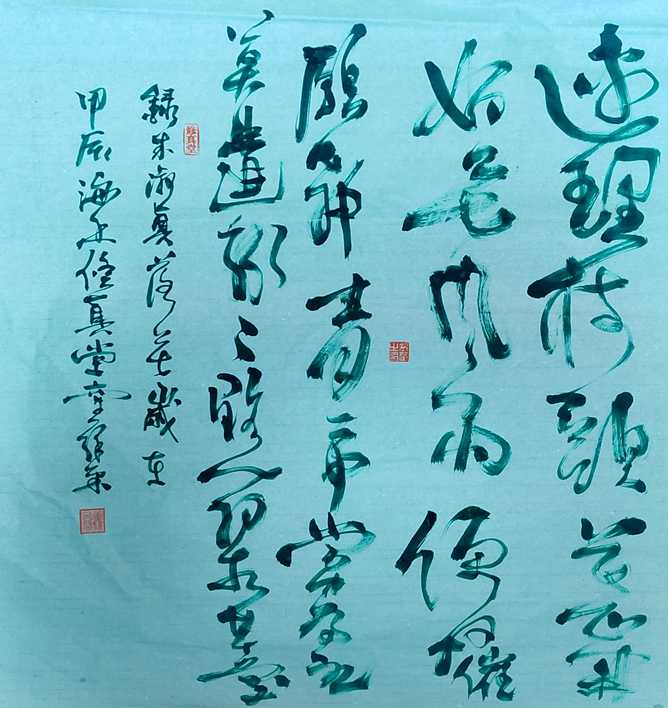 連理枝頭花正開
妒花風雨便相催
願教青帝常為主
莫遣紛〻點翠苔
錄朱淑真落花歲在
甲辰海上修真堂
修真堂